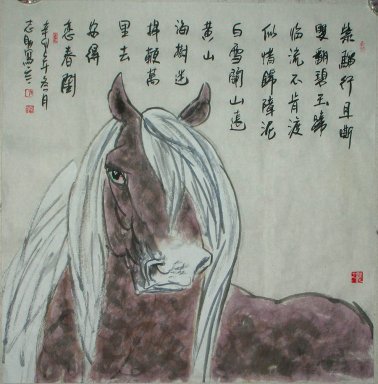 紫骝行且嘶
雙翻碧玉蹄
临流不肯渡
似惜錦障泥
白雪關山遠
黄云
海樹迷
揮鞭萬
里去
安得
恋春閨
辛卯年冬月